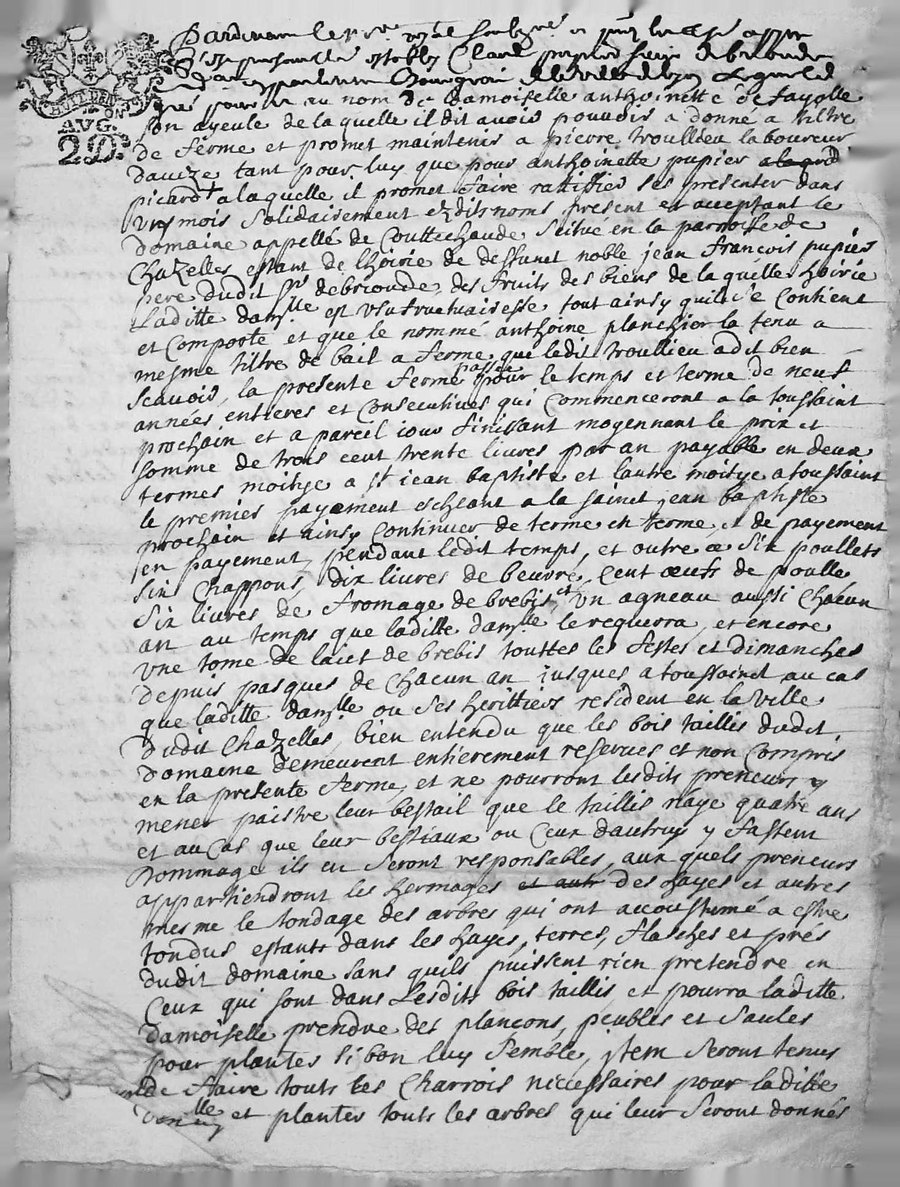 GEN DE LYON
AVG.
2 D.s
Pardevant le no.re royal soubsigné et
personnelle estably Claude pupier sieur de brioude
advocat en parlement Bourgeois de la ville de lyon Lequel de
gré pour et au nom de damoiselle anthoinette de fayolle
son ayeule de laquelle il dit avoir pouvoir a donné a tiltre
de ferme et promet maintenir a pierre troullieu laboureur
daveze tant pour luy que pour anthoinette pupier
picard a laquelle il promet faire rattiffier ses presentes dans
un mois solidairement esdits noms present et acceptant le
domaine appellé de Couttechaude scitué en la parroisse de
Chazelles estant de lhoirie de deffunct noble jean françois pupier
pere dudit sr debrioude, des fruits des biens de laquelle hoirie
Laditte dam.lle est usufructuairesse tout ainsy quil se Contient
et Comporte et que le nommé anthoine planchier la tenu a
mesme tiltre de bail a ferme que ledit troullieu a dit bien
scavoir, la presente ferme passée pour le temps et terme de neuf
années entieres et Consecutives qui Commenceront a la toussaint
prochain et a pareil iour finissant moyennant le prix et
somme de trois cent trente livres par an payable en deux
termes moitye a st jean baptiste et lautre moitye a toussaint
le premier payement escheant a la sainct jean baptiste
prochain et ainsy Continuer de terme en terme, et de payement
en payement pendant ledit temps, et outre ce six poullets
six Chappons, dix livres de beurre, Cent œufs de poulle
six livres de fromage de brebis, et un agneau aussi Chacun
an au temps que laditte dam.lle le requerra, et encore
une tome de laict de brebis touttes les festes et dimanches
depuis pasques de Chacun an jusques a toussainct au cas
que laditte dam.lle ou ses herittiers resident en la ville
dudit Chazelles, bien entendu que les bois taillis dudit
domaine demeurent entierement reserves et non Compris
en la presente ferme, et ne pourront lesdits preneurs y
mener paistre leur bestail que le taillis naye quatre ans
et au Cas que leur bestiaux ou Ceux dautruy y fassent
dommage ils en seront responsables, aux quels preneurs
appartiendront les hermages et autr des hayes et autres
mesme le tondage des arbres qui ont accoustumé a estre
tondus estants dans les hayes, terres, flaches et prés
dudit domaine sans quils puissent rien pretendre en
Ceux qui sont dans Lesdits bois taillis, et pourra laditte
damoiselle prendre des plançons, peubles et saules
pour planter si bon luy semble, jtem seront tenus
de faire touts les Charrois necessaires pour laditte
dam.lle et planter touts les arbres qui leur seront donnés